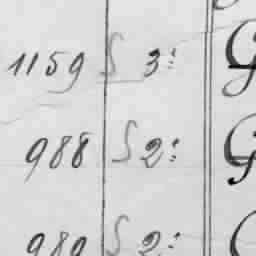 1159 S 3: G
988 S 2: G
989 S 2: